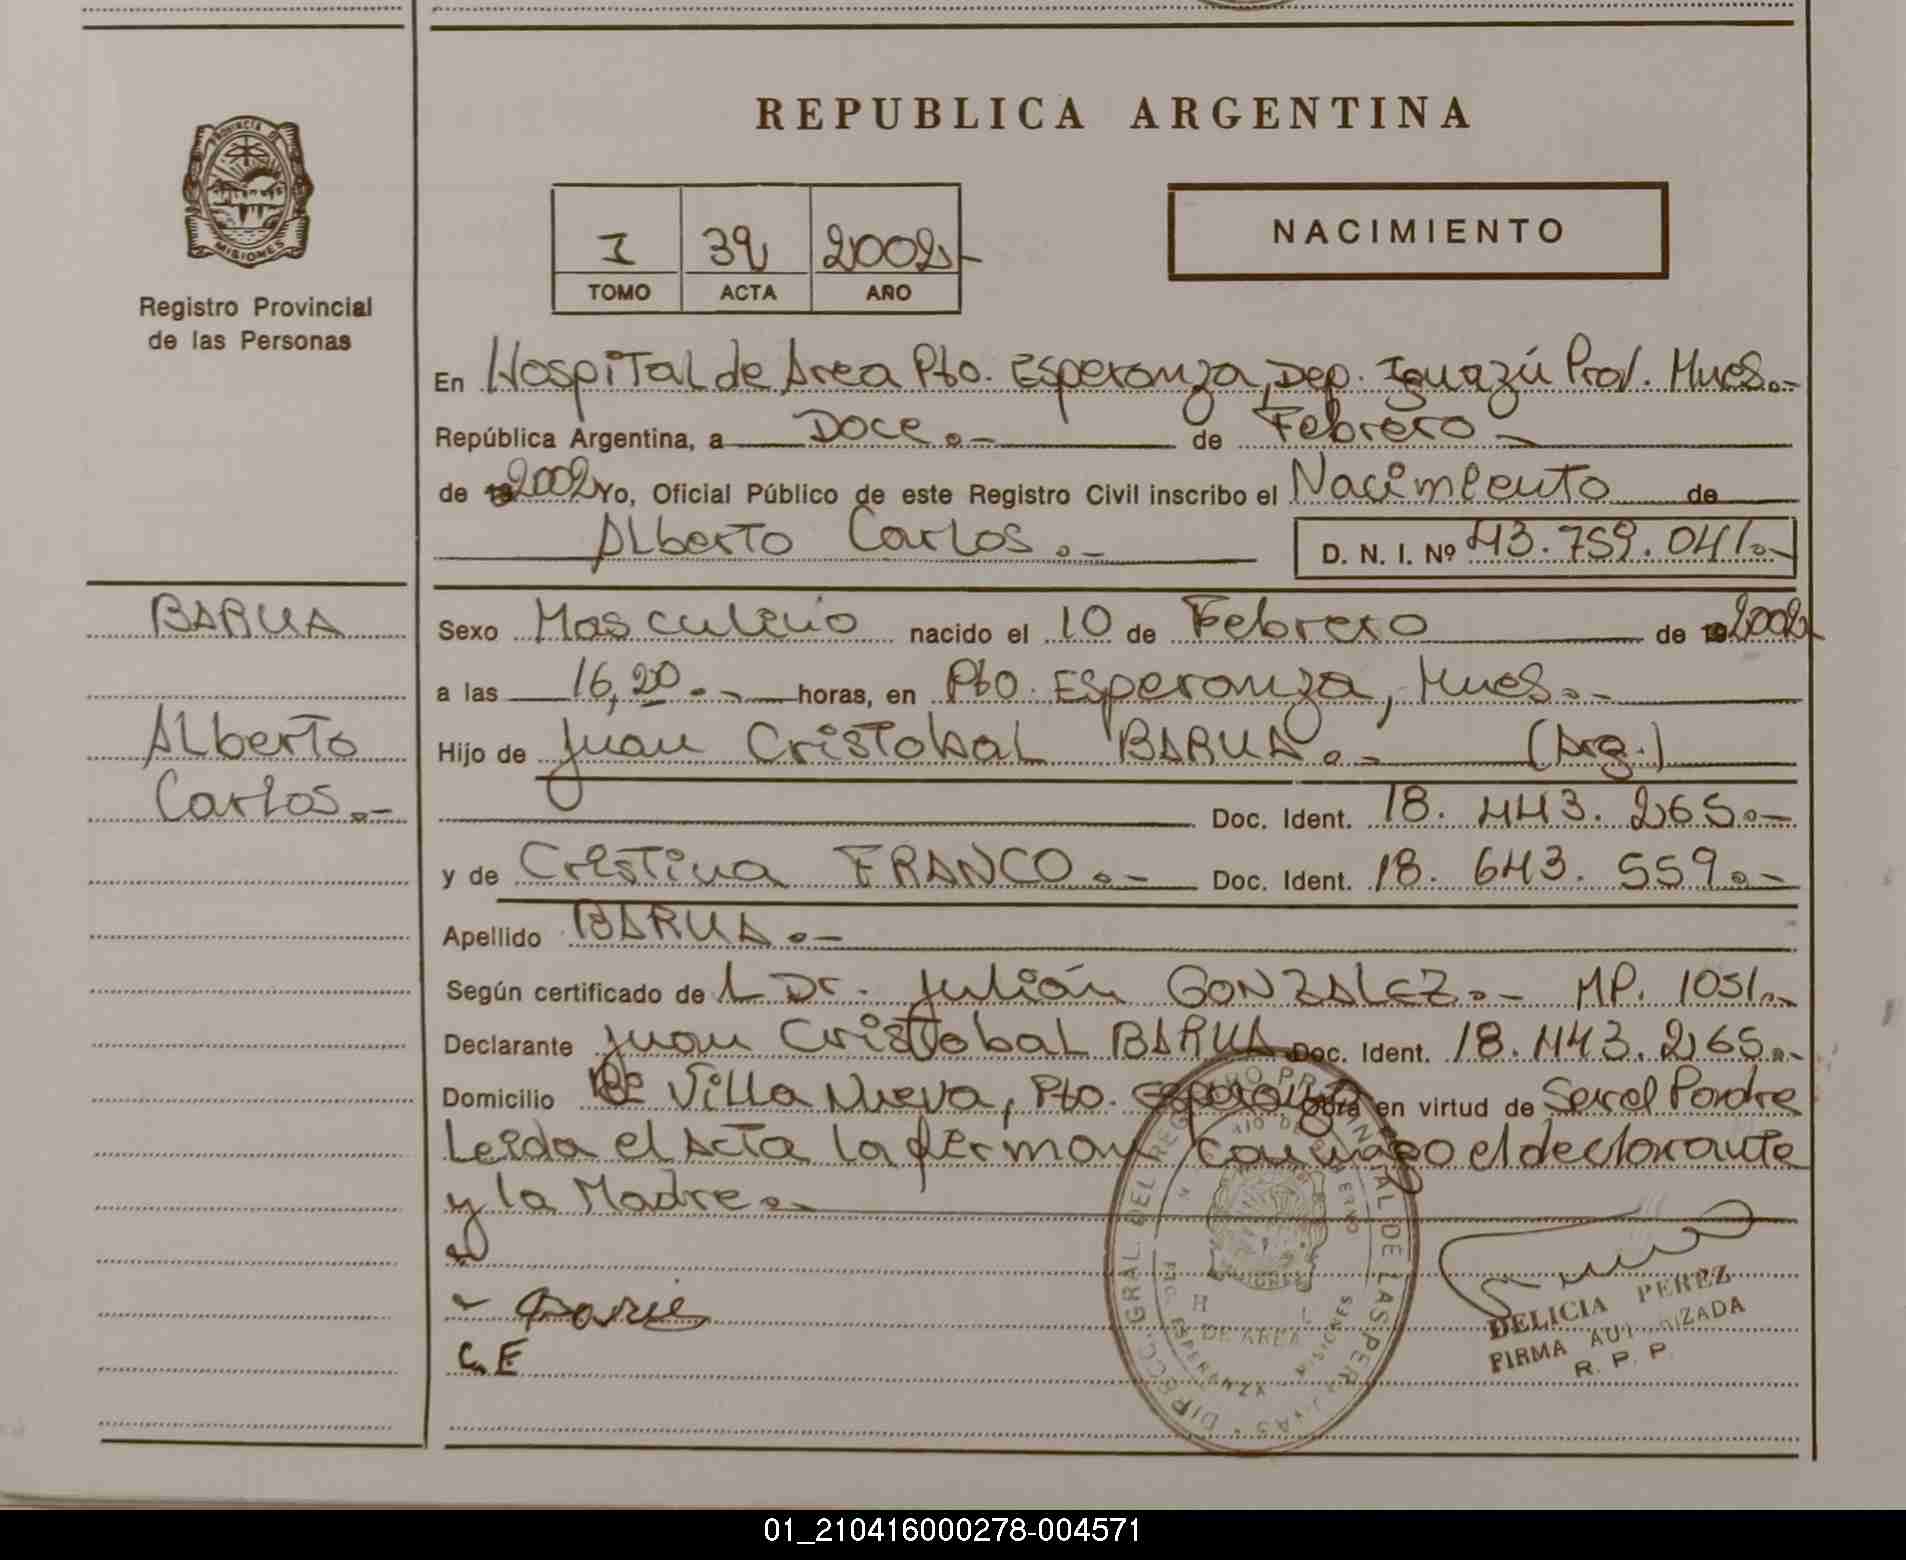 REPUBLICA ARGENTINA
PROVINCIA DE
MISIONES
Registro Provincial
de las Personas
I 39 2002.-
TOMO ACTA AÑO
NACIMIENTO
En Hospital de Area Pto. Esperanza, Dep. Iguazú Prov. Mnes.-
República Argentina, a Doce.- de Febrero
de 2002 Yo, Oficial Público de este Registro Civil inscribo el Nacimiento de
Alberto Carlos.- D. N. I. Nº 43.759.041.-
BARUA
Alberto
Carlos.-
Sexo Masculino nacido el 10 de Febrero de 2002
a las 16,20.- horas, en Pto. Esperanza, Mnes.-
Hijo de Juan Cristobal BARUA.- (Arg.)
Doc. Ident. 18.443.265.-
y de Cristina FRANCO.- Doc. Ident. 18.643.559.-
Apellido BARUA.-
Según certificado de L Dr. Julián GONZALEZ.- MP. 1051.-
Declarante Juan Cristobal BARUA Doc. Ident. 18.443.265.-
Domicilio Bº Villa Nueva, Pto. Esperanza Obra en virtud de Ser el Padre
Leida el Acta la firman conmigo el declarante
y la Madre.-
C. E
DIRECC. GRAL. DEL REGISTRO PROVINCIAL DE LAS PERSONAS
DE AREA
ESPERANZA MISIONES
DELICIA PEREZ
FIRMA AUTORIZADA
R. P. P.
01_210416000278-004571